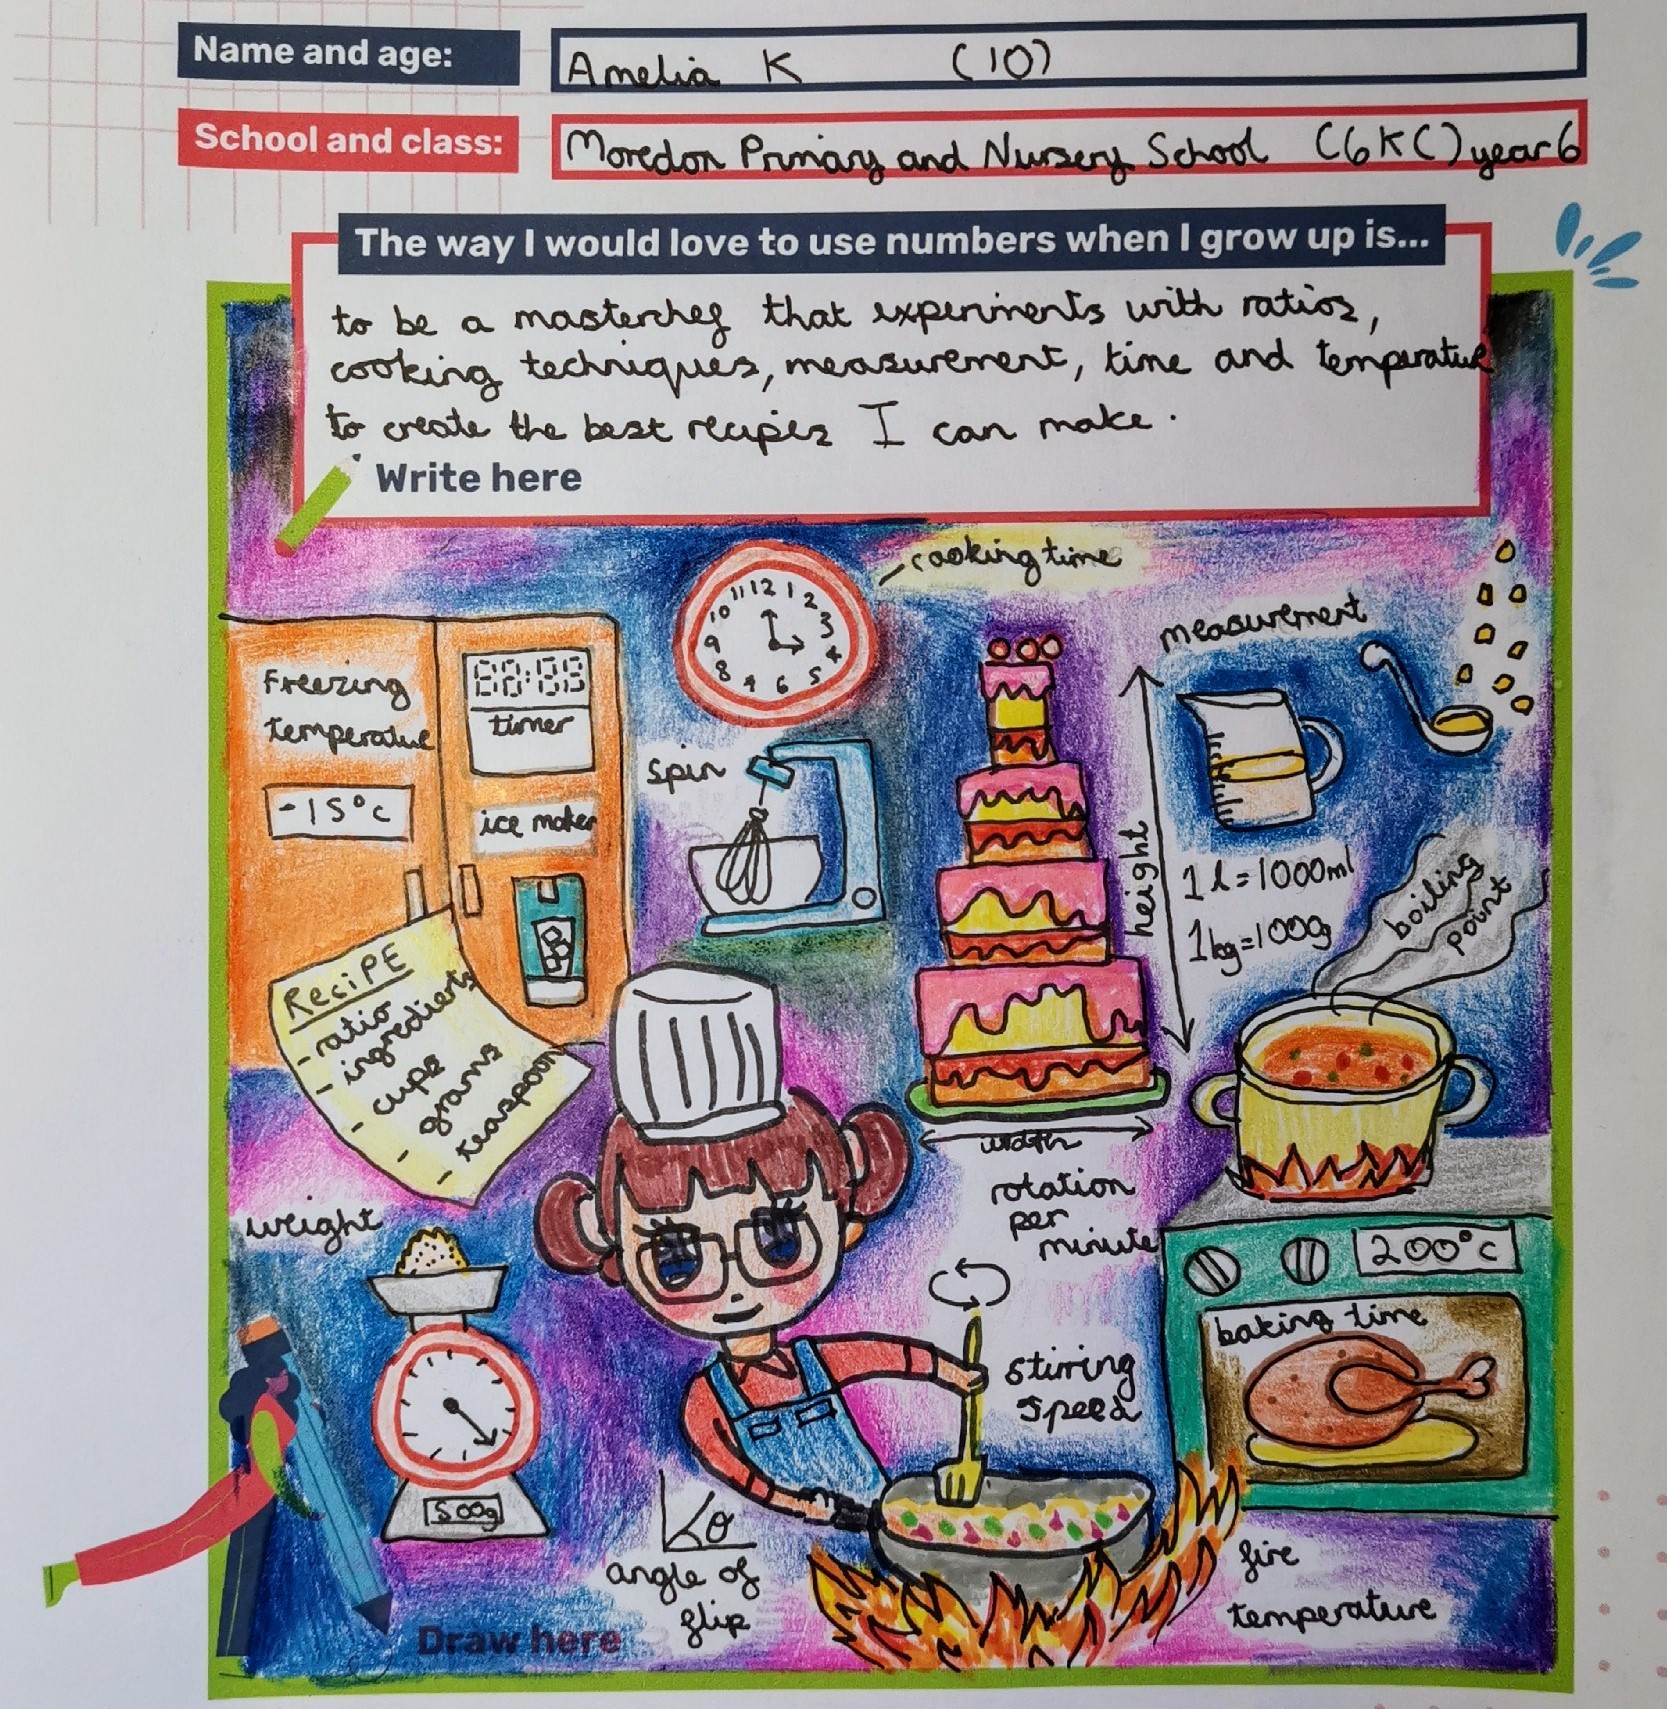 Name and age:
Amelia K (10)
School and class:
Moredon Primary and Nursery School (6KC) year 6
The way I would love to use numbers when I grow up is...
to be a masterchef that experiments with ratios,
cooking techniques, measurement, time and temperature
to create the best recipes I can make.
Write here
cooking time
12 1 2 3 4 5 6 7 8 9 10 11
measurement
Freezing
temperature
-15°c
timer
ice maker
spin
height
1l=1000ml
1kg=100g
boiling
point
ReciPE
- ratio
- ingredients
- cups
- grams
- teaspoon
width
rotation
per
minute
weight
500g
200°c
baking time
stirring
speed
angle of
flip
fire
temperature
Draw here